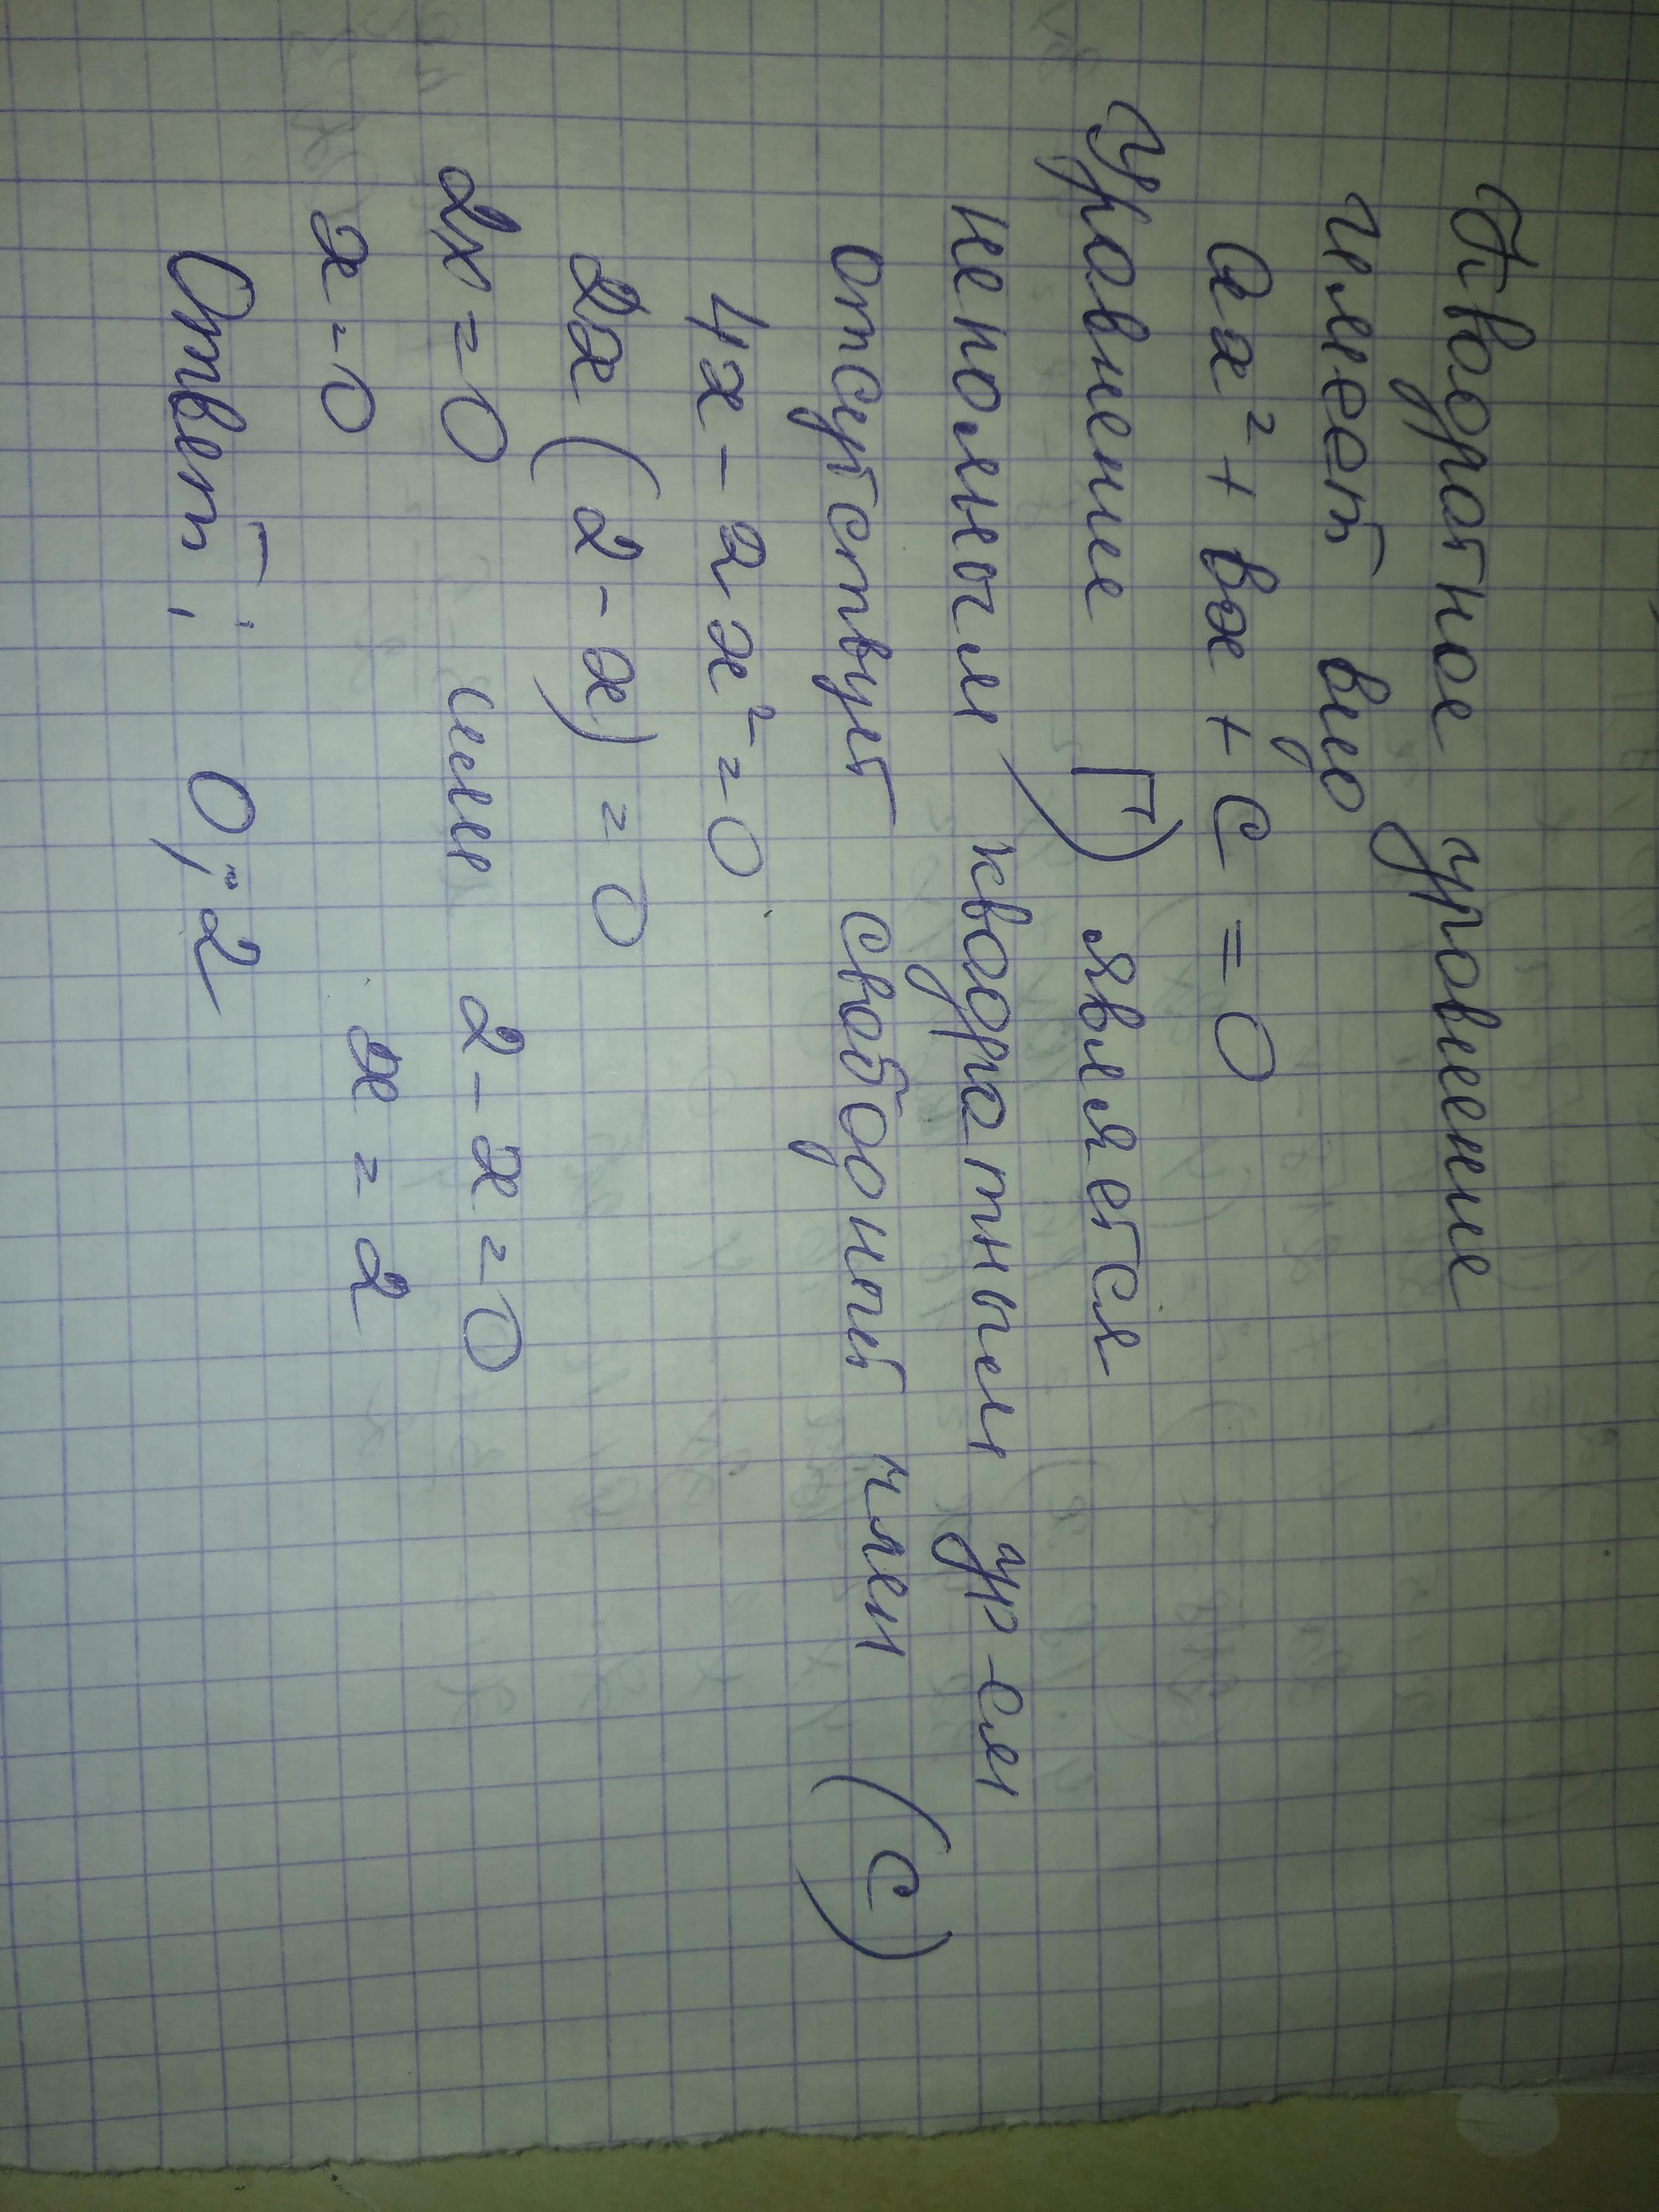 Квадратное уравнение
имеет вид
ax² + вx + c = 0
Уравнение Г) является
неполным квадратным ур-ем
отсутствует свободный член (с)
4x - 2x² = 0
2x (2 - x) = 0
2x = 0 или 2 - x = 0
x = 0 x = 2
Ответ: 0; 2